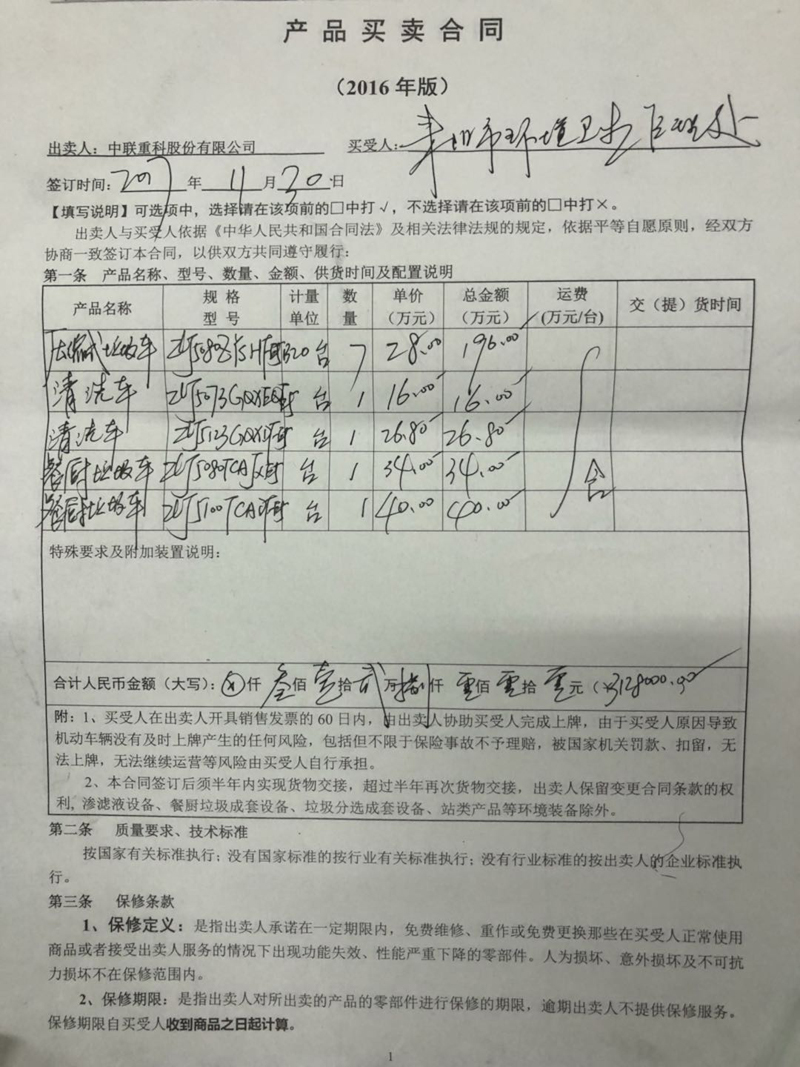 产品买卖合同
（2016 年版）
出卖人：中联重科股份有限公司 买受人： 市环境卫生管理处
签订时间：2017 年 11 月 30 日
【填写说明】可选项中，选择请在该项前的□中打√，不选择请在该项前的□中打×。
出卖人与买受人依据《中华人民共和国合同法》及相关法律法规的规定，依据平等自愿原则，经双方
协商一致签订本合同，以供双方共同遵守履行：
第一条 产品名称、型号、数量、金额、供货时间及配置说明
产品名称 规格型号 计量单位 数量 单价（万元） 总金额（万元） 运费（万元/台） 交（提）货时间
压缩式垃圾车 台 7 28.00 196.00
清洗车 台 1 16.00 16.00
清洗车 台 1 26.80 26.80
餐厨垃圾车 台 1 34.00 34.00
餐厨垃圾车 台 1 40.00 40.00
含
特殊要求及附加装置说明：
合计人民币金额（大写）：⊗仟 叁佰 壹拾 贰万 捌仟 零佰 零拾 零元（¥3128000.00
附：1、买受人在出卖人开具销售发票的 60 日内，由出卖人协助买受人完成上牌，由于买受人原因导致
机动车辆没有及时上牌产生的任何风险，包括但不限于保险事故不予理赔，被国家机关罚款、扣留，无
法上牌，无法继续运营等风险由买受人自行承担。
2、本合同签订后须半年内实现货物交接，超过半年再次货物交接，出卖人保留变更合同条款的权
利, 渗滤液设备、餐厨垃圾成套设备、垃圾分选成套设备、站类产品等环境装备除外。
第二条 质量要求、技术标准
按国家有关标准执行；没有国家标准的按行业有关标准执行；没有行业标准的按出卖人的企业标准执
行。
第三条 保修条款
1、保修定义：是指出卖人承诺在一定期限内，免费维修、重作或免费更换那些在买受人正常使用
商品或者接受出卖人服务的情况下出现功能失效、性能严重下降的零部件。人为损坏、意外损坏及不可抗
力损坏不在保修范围内。
2、保修期限：是指出卖人对所出卖的产品的零部件进行保修的期限，逾期出卖人不提供保修服务。
保修期限自买受人收到商品之日起计算。
1